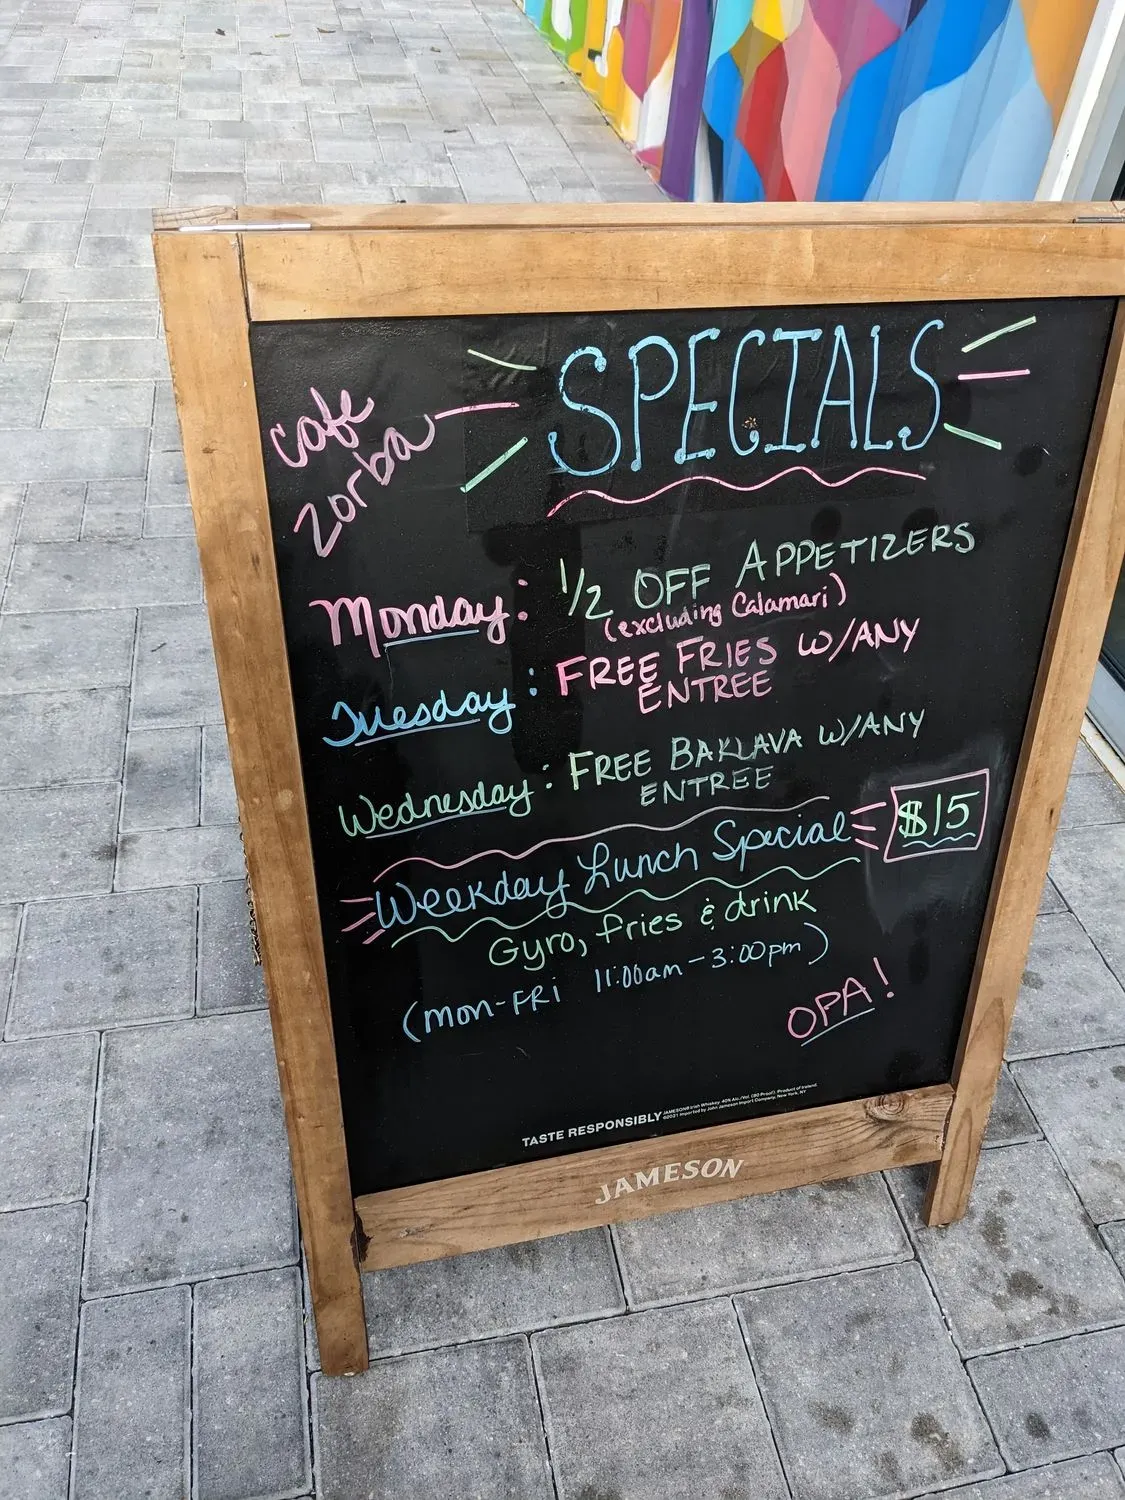 cafe
zorba
SPECIALS
Monday: 1/2 OFF APPETIZERS
(excluding Calamari)
Tuesday: FREE FRIES W/ANY
ENTREE
Wednesday: FREE BAKLAVA W/ANY
ENTREE
Weekday Lunch Special $15
Gyro, fries & drink
(mon-FRI 11:00am-3:00pm)
OPA!
TASTE RESPONSIBLY JAMESON® Irish Whiskey. 40% Alc./Vol. (80 Proof). Product of Ireland.
©2021 Imported by John Jameson Import Company, New York, NY
JAMESON